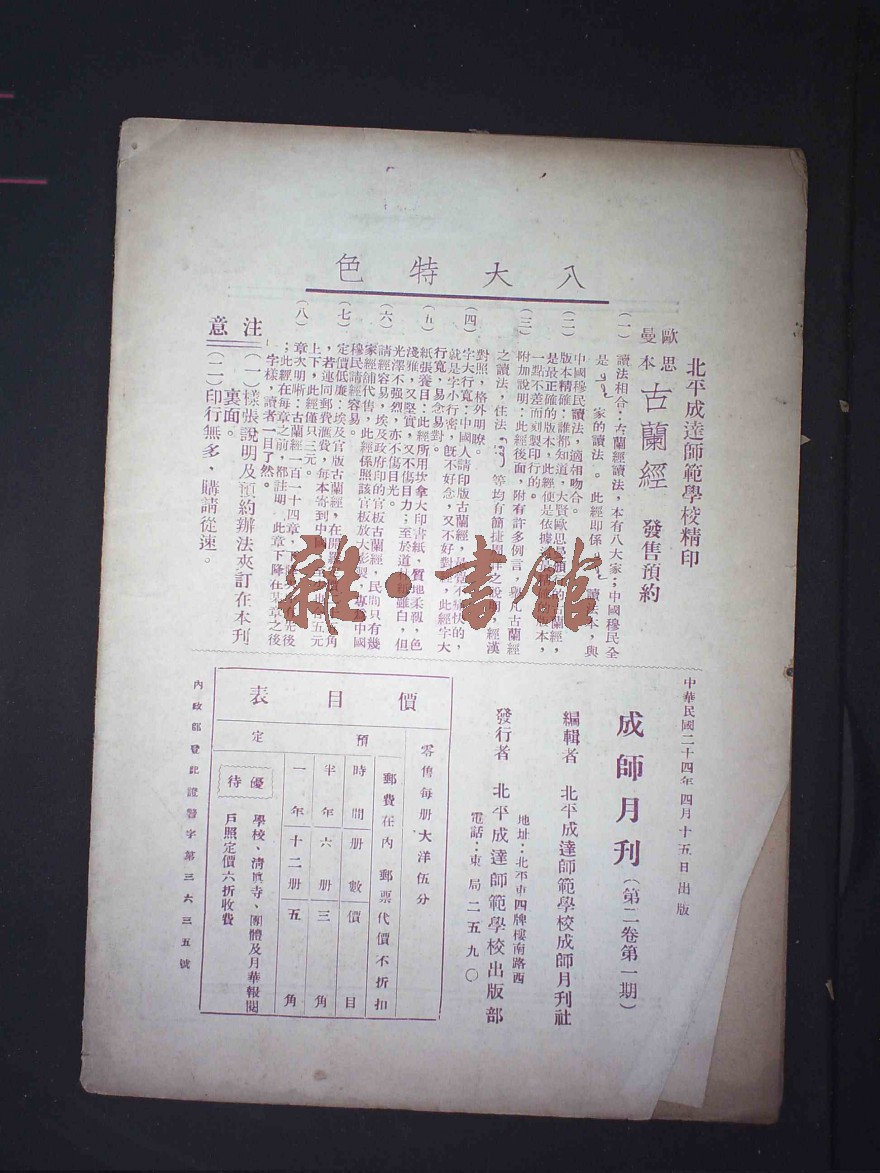 八大特色
北平成達師範學校精印
歐思曼本 古蘭經 發售預約
(一) 讀法相合:古蘭經讀法,本有八大家;中國穆民全
是 家的讀法。此經即係 讀法本,與
中國穆民讀法,適相吻合。
(二) 版本精確:誰都知道,大賢歐思 的古蘭經,
是最正確的版本,此經便是依據 本,
一點不差而刻製印行的。
(三) 附加說明:此經後面,附有許多例言,舉凡古蘭經
之讀法,住法, 等均有簡捷 之說明,經漢
對照,格外明瞭。
(四) 字大行寬:中國人請印版古蘭經, 不痛快的,
就是字小行密,旣不好念,又不好對 ,此經字大
行寬,易念易對。
(五) 紙張養目:此經所用坎拿大印書紙,質地柔 ,色
淺雅,又堅實,又不傷目力;至於道林紙雖白,但
光澤不強烈,亦不傷目光。
(六) 請經容易,埃及政府印的官板古蘭經,民間只有幾
家經舖代售,此經係照該官板放大影 ,專 中國
穆民請經容易。
(七) 定價低廉:埃及官版古蘭經,在開羅 角
,若連同郵費滙費,每本寄到中國 五元
上下,此經僅只三元。
(八) 章次明晰:古蘭經一百一十四章, 先後
;此經在每章之前,都註明 此章下降在某章之後
字樣,讀者一目了然。
注意
(一) 樣張說明及預約辦法夾訂在本刊
裏面。
(二) 印行無多,購請從速。
雜·書館
中華民國二十四年四月十五日出版
成師月刊(第二卷第一期)
編輯者 北平成達師範學校成師月刊社
地址:北平東四牌樓南路西
發行者 北平成達師範學校出版部
電話:東局二五九〇
價目表
零售每册大洋伍分
預定
郵費在內 郵票代價不折扣
時間 册數 價目
半年 六册 三角
一年 十二册 五角
優待
學校、淸眞寺、團體及月華報閱
戶照定價六折收費
內政部登記證警字第三六三五號